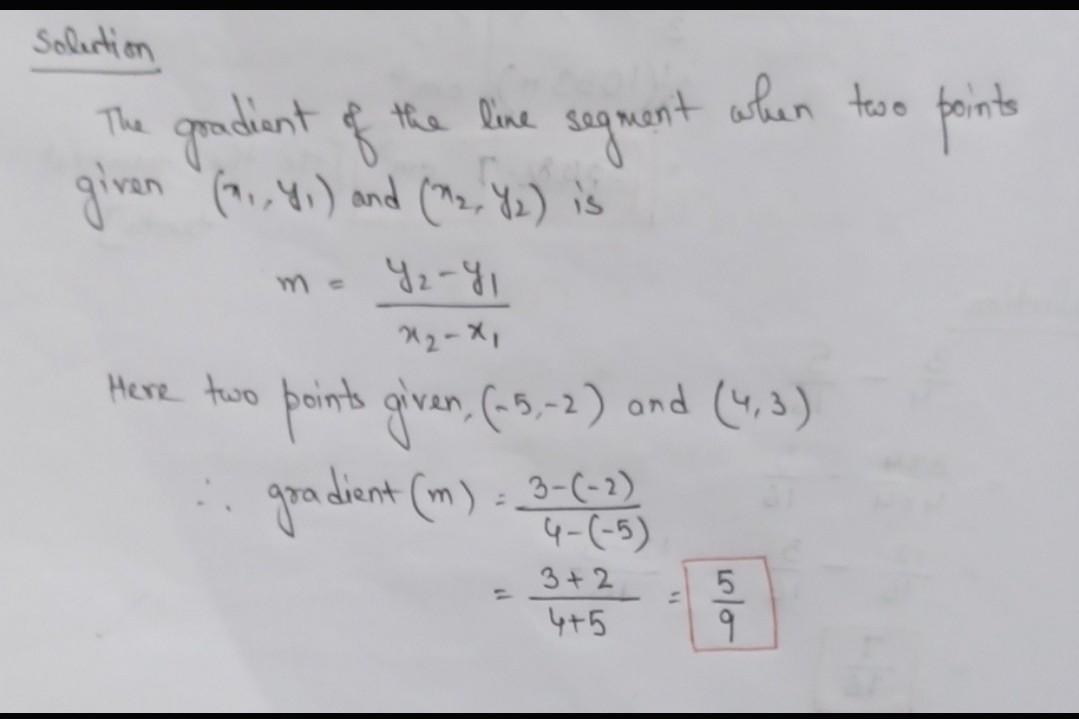 Solution
The gradient of the line segment when two points
given (x₁, y₁) and (x₂, y₂) is
m = y₂-y₁ / x₂-x₁
Here two points given, (-5,-2) and (4,3)
∴ gradient (m) = 3-(-2) / 4-(-5)
= 3+2 / 4+5 = 5/9